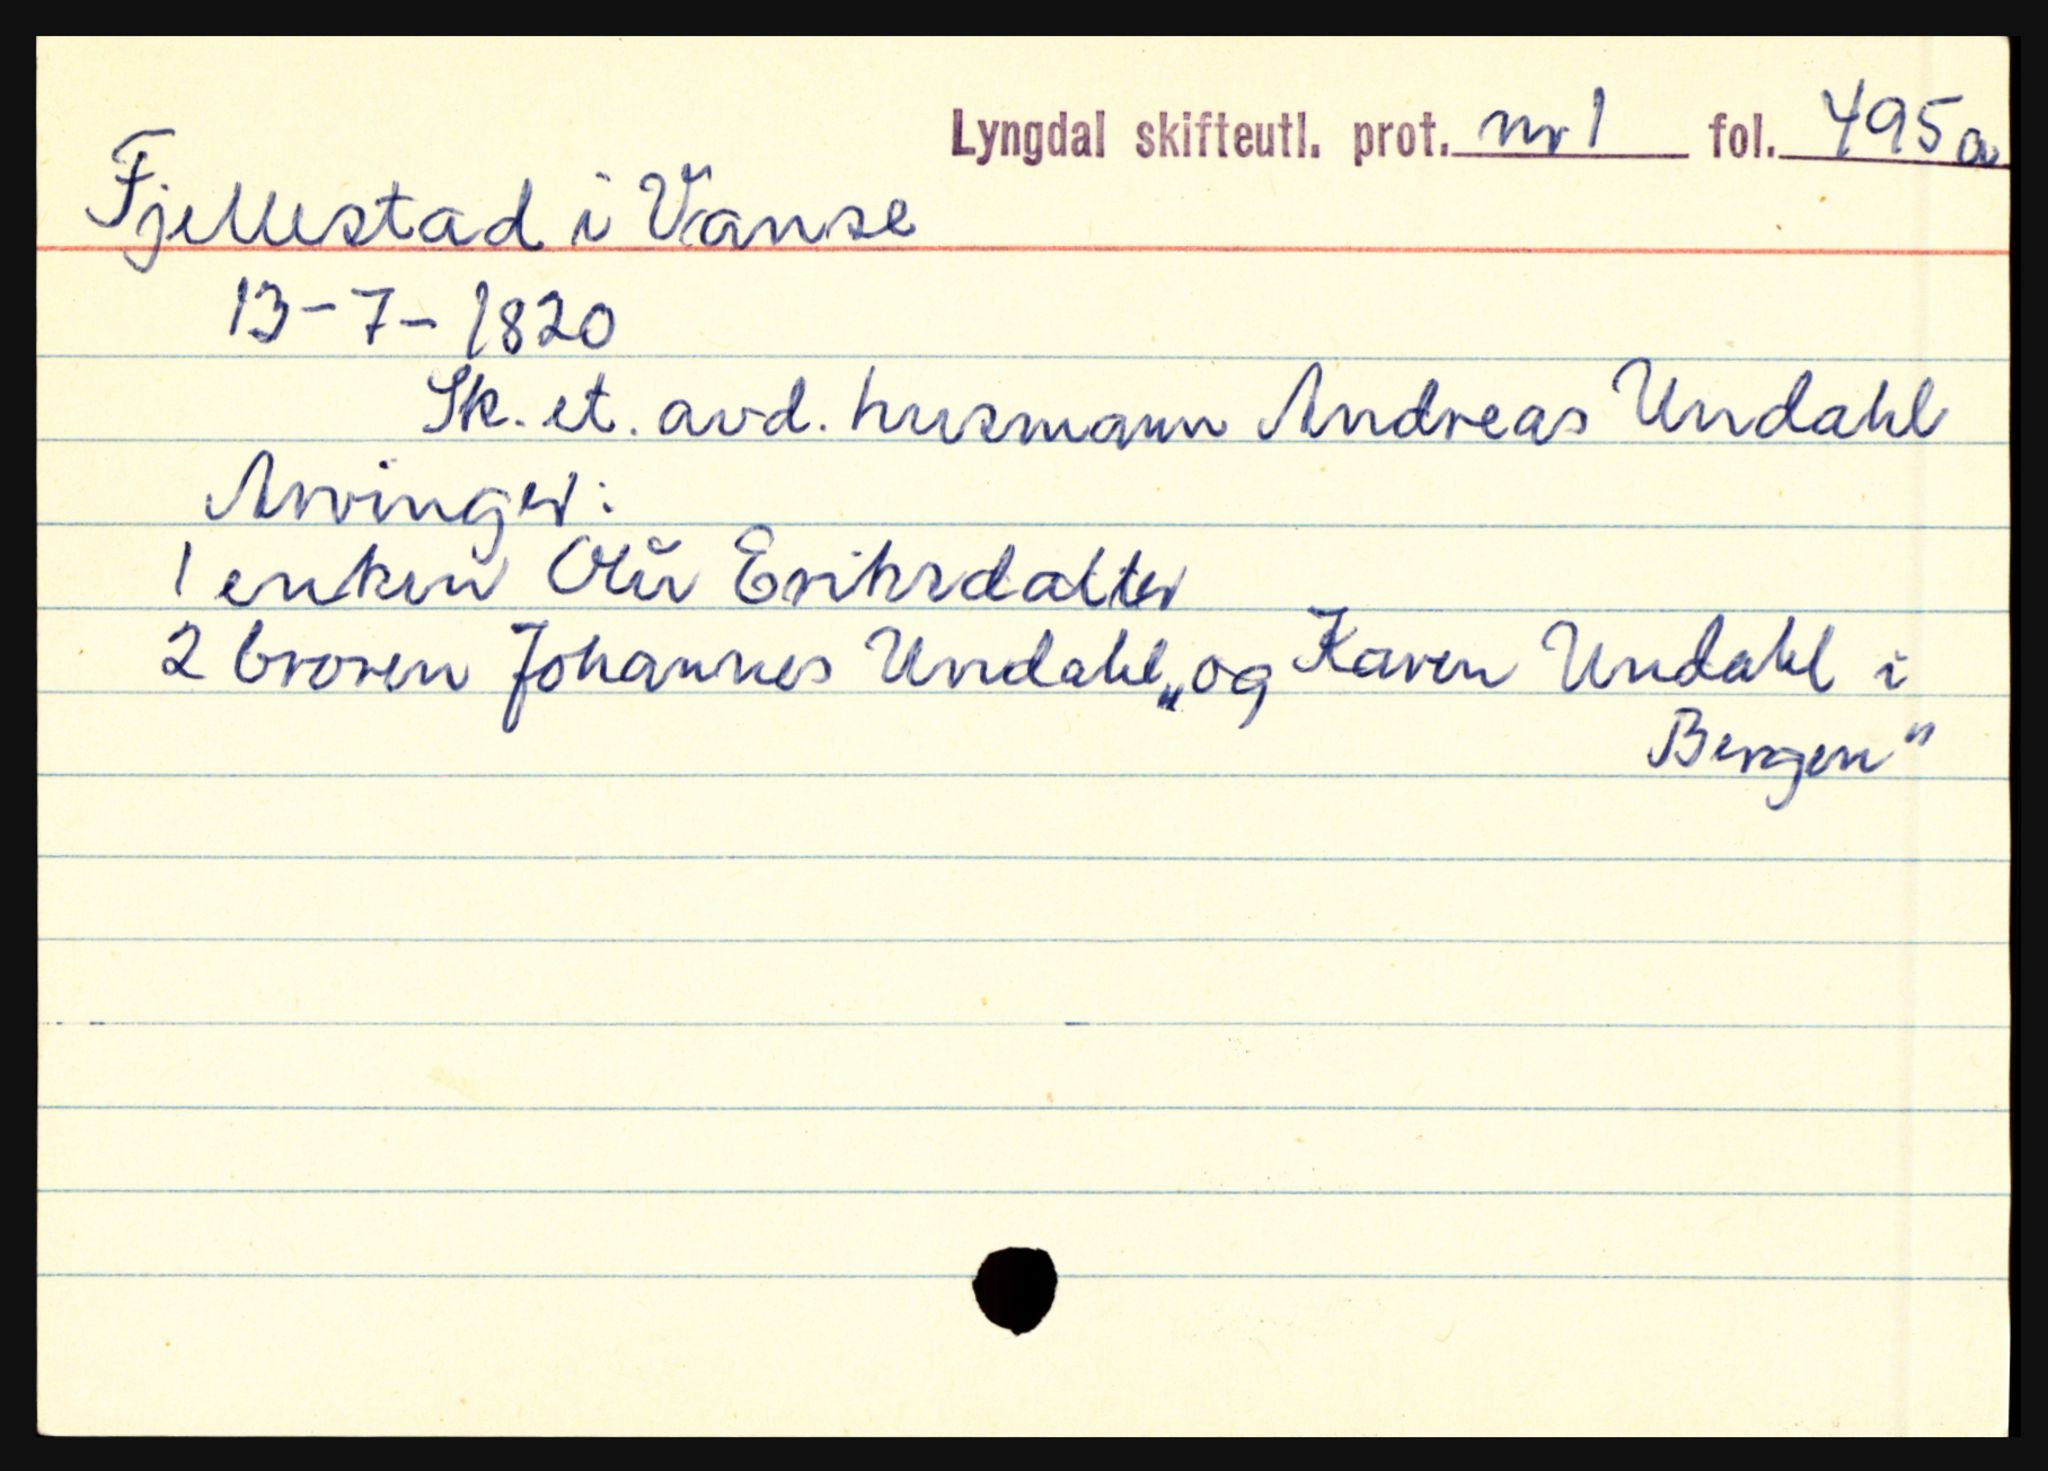 Lyngdal skifteutl. prot. nr 1 fol. 495a
Fjellestad i Vanse
13-7-1820
Sk. et. avd. husmann Andreas Undahl
Arvinger:
1 enken Eriksdatter
2 broren Johannes Undahl „og Karen Undahl i
Bergen"